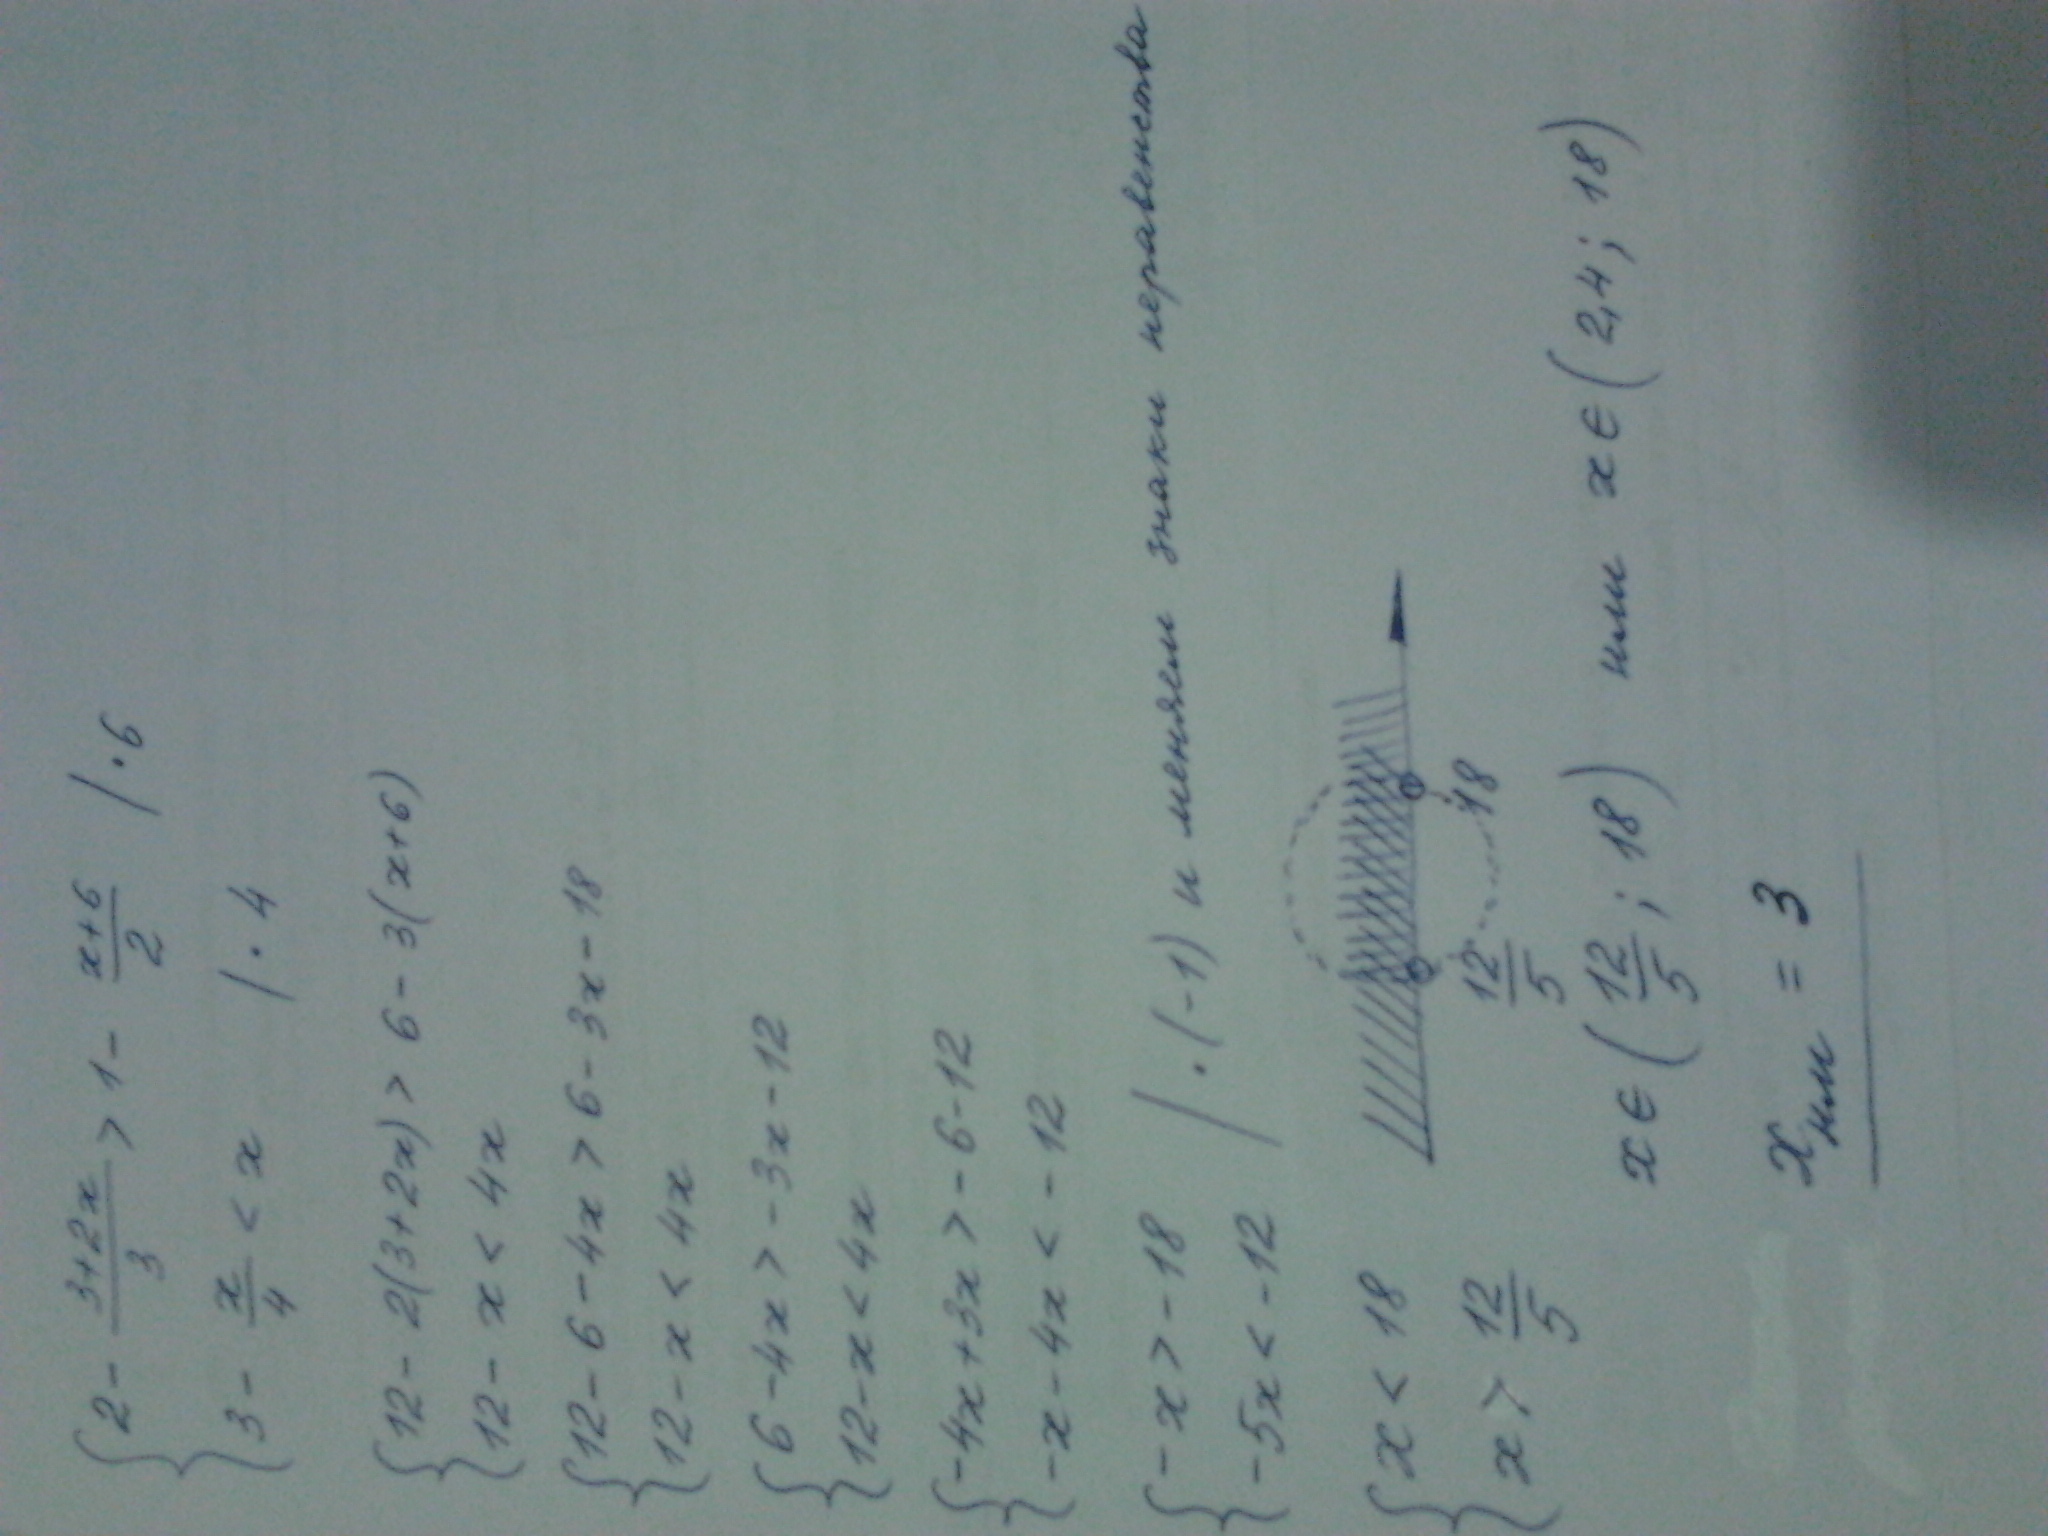 { 2 - (3+2x)/3 > 1 - (x+6)/2 / · 6
3 - x/4 < x / · 4
{ 12 - 2(3+2x) > 6 - 3(x+6)
12 - x < 4x
{ 12 - 6 - 4x > 6 - 3x - 18
12 - x < 4x
{ 6 - 4x > -3x - 12
12 - x < 4x
{ -4x + 3x > -6 - 12
-x - 4x < -12
{ -x > -18 / · (-1) и меняем знаки неравенства
-5x < -12
{ x < 18
x > 12/5
12/5 18
x ∈ (12/5; 18) или x ∈ (2,4; 18)
x нм = 3